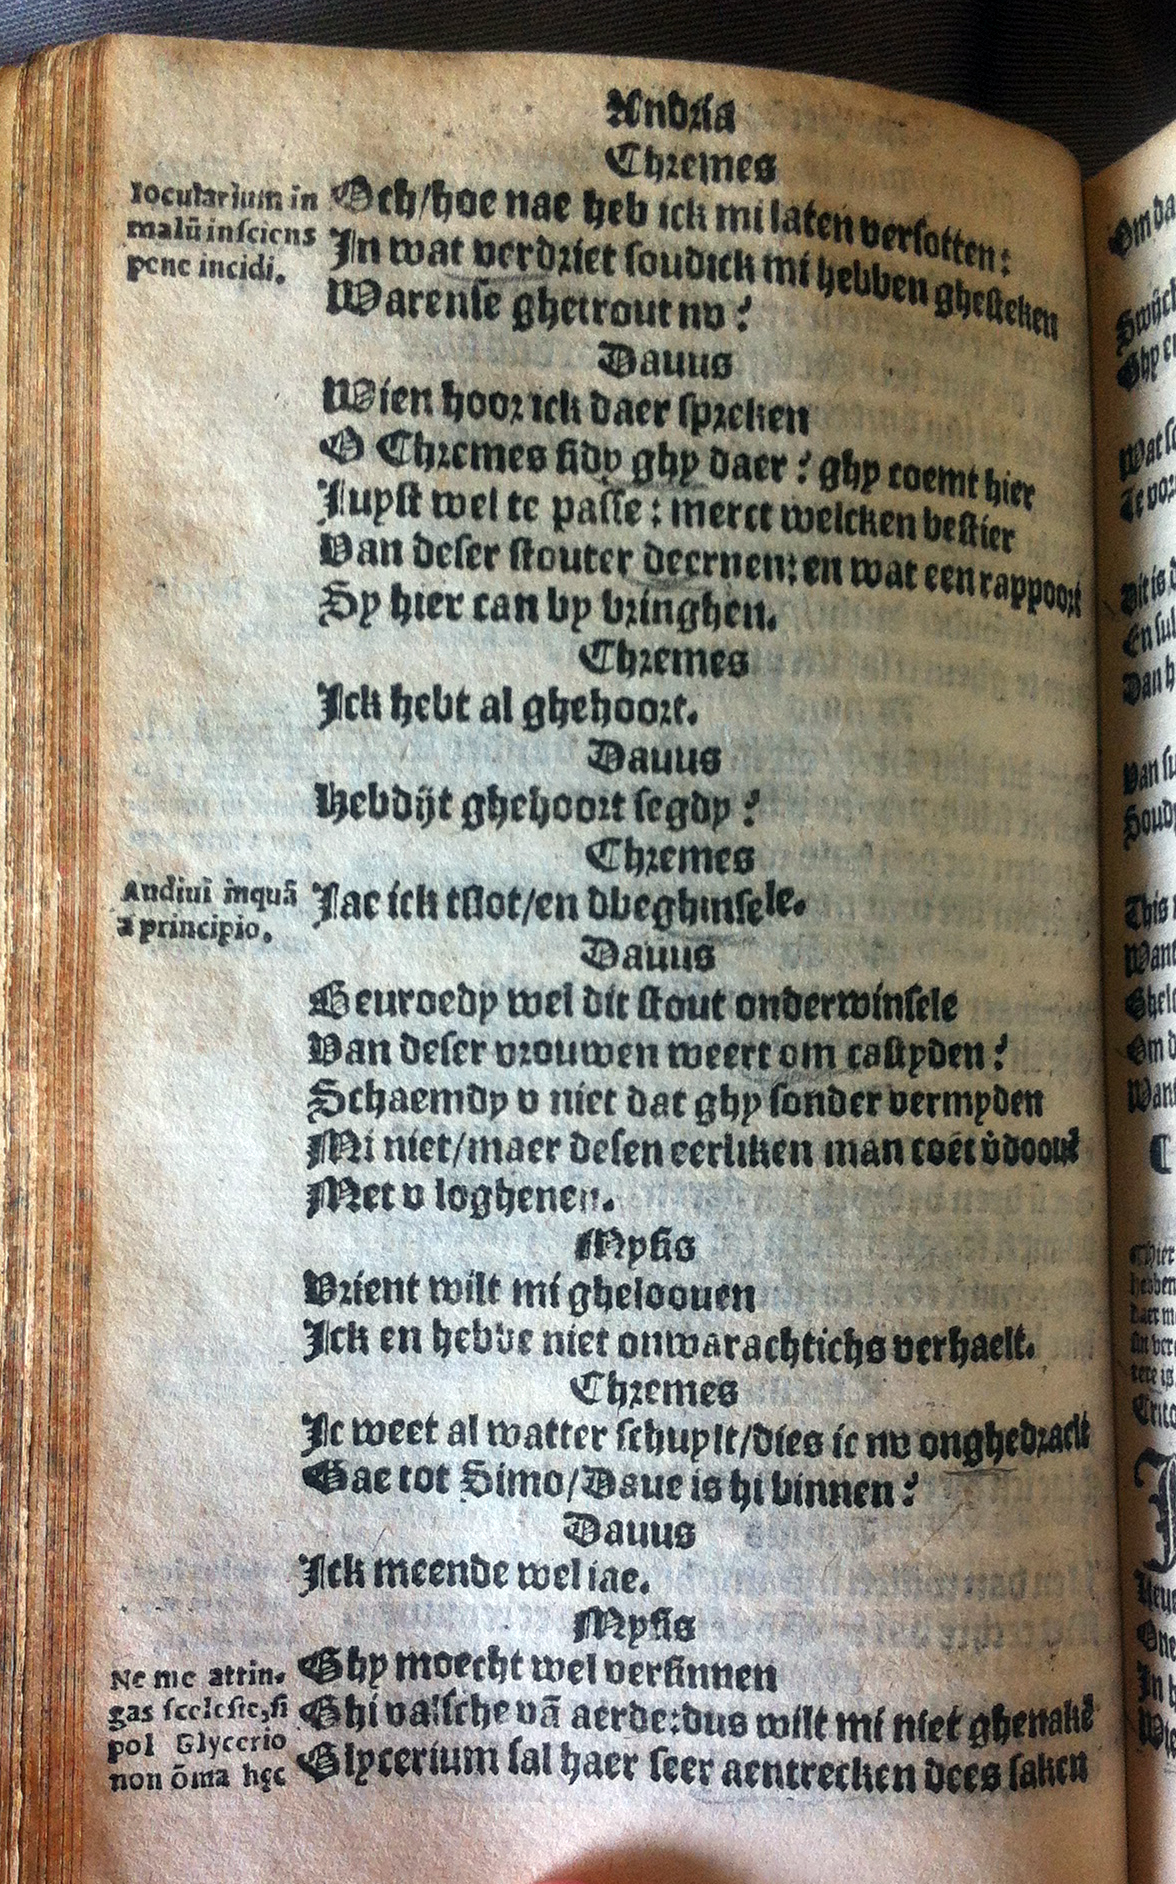 Andria
Chremes
Iocularium in
malū insciens
pene incidi.
Och/hoe nae heb ick mi laten versotten:
In wat verdriet soudick mi hebben ghesteken
Warense ghetrout nv?
Dauus
Wien hoor ick daer spreken
O Chremes sidy ghy daer? ghy coemt hier
Iuyst wel te passe: merct welcken bestier
Van deser stouter deernen: en wat een rappoort
Sy hier can by bringhen.
Chremes
Ick hebt al ghehoort.
Dauus
Hebdijt ghehoort segdy?
Chremes
Andiui inquā
a principio.
Iae ick tslot/en dbeghinsele.
Dauus
Geuroedy wel dit stout onderwinsele
Van deser vrouwen weert om castyden?
Schaemdy v niet dat ghy sonder vermyden
Mi niet/maer desen eerliken man coēt v̄doouē
Met v loghenen.
Mysis
Vrient wilt mi gheloouen
Ick en hebbe niet onwarachtichs verhaelt.
Chremes
Ic weet al watter schuylt/dies ic nv onghedraelt
Gae tot Simo/Daue is hi binnen?
Dauus
Ick meende wel iae.
Mysis
Ne me attin-
gas sceleste, si
pol Glycerio
non ōma hęc
Ghy moecht wel versinnen
Ghi valsche vā aerde: dus wilt mi niet ghenakē
Glycerium sal haer seer aentrecken dees saken